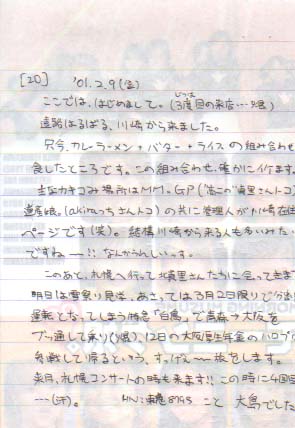 [20] '01.2.9(金)
ここでは、はじめまして。(3度目の来店…
じつは
遠路はるばる、川崎から来ました。
只今、カレーラーメン+バター+ライスの組み合わせ
食したところです。この組み合わせ、確かにイケます。
カキコみ場所はMM。GP(
道産娘。(akiraっちさんトコ)の共に管理人が川崎在住
ページです(笑)。結構川崎から来る人も多いみたい
ですねー!!なんかうれしいっす。
このあと、札幌へ行って北真里さんたちに会って来ます
明日は雪祭り見学、あさっては3月2日限りで
運転となってしまう特急"白鳥"で青森→大阪を
ブッ通しで乗り(爆)、12日の大阪厚生年金のハロプロ
参戦して帰るという、すっげぇ〜旅をします。
来月、札幌コンサートの時も来ます!!この時に4回目
…(汗)。 HN: 8795 こと 大島でした